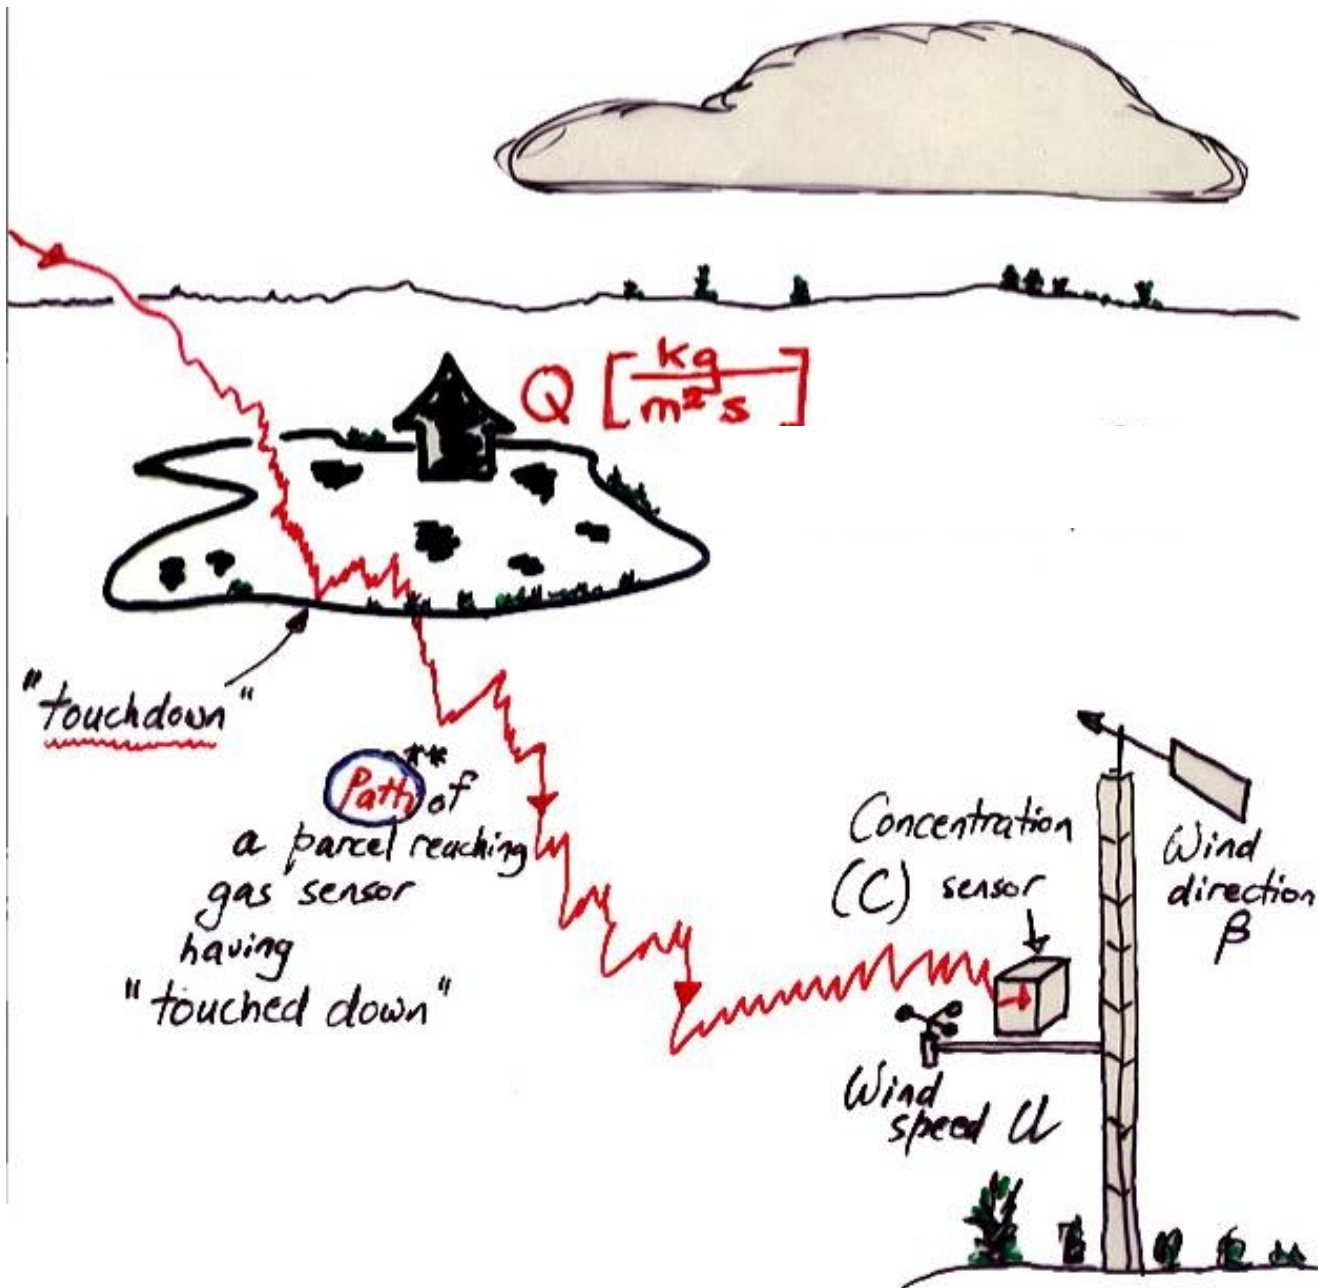 Q [kg/m² s]
"touchdown"
Path** of
a parcel reaching
gas sensor
having
"touched down"
Concentration
(C) sensor
Wind
direction
β
Wind
speed U